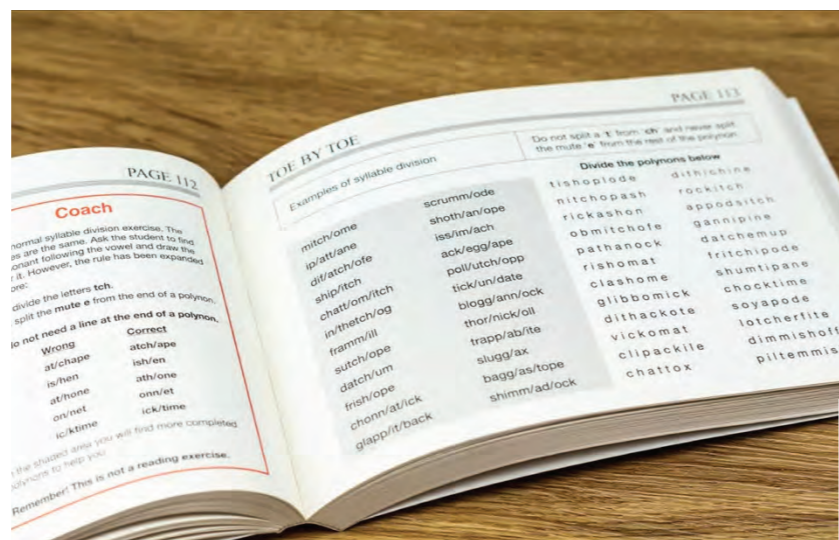 PAGE 112
Coach
normal syllable division exercise. The
es are the same. Ask the student to find
sonant following the vowel and draw the
r it. However, the rule has been expanded
ore:
divide the letters tch.
split the mute e from the end of a polynon.
o not need a line at the end of a polynon.
Wrong Correct
at/chape atch/ape
is/hen ish/en
at/hone ath/one
on/net onn/et
ic/ktime ick/time
n the shaded area you will find more completed
olynons to help you
Remember! This is not a reading exercise.
TOE BY TOE PAGE 113
Examples of syllable division
Do not split a 't' from 'ch' and never split
the mute 'e' from the rest of the polynon
mitch/ome
ip/att/ane
dif/atch/ofe
ship/itch
chatt/om/itch
in/thetch/og
framm/ill
sutch/ope
datch/um
frish/ope
chonn/at/ick
glapp/it/back
scrumm/ode
shoth/an/ope
iss/im/ach
ack/egg/ape
poll/utch/opp
tick/un/date
blogg/ann/ock
thor/nick/oll
trapp/ab/ite
slugg/ax
bagg/as/tope
shimm/ad/ock
Divide the polynons below
tishoplode
nitchopash
rickashon
obmitchofe
pathanock
rishomat
clashome
glibbomick
dithackote
vickomat
clipackile
chattox
dithichine
rockitch
appodsitch
gannipine
datchemup
fritchipode
shumtipane
chocktime
soyapode
lotcherfite
dimmishoff
piltemmis